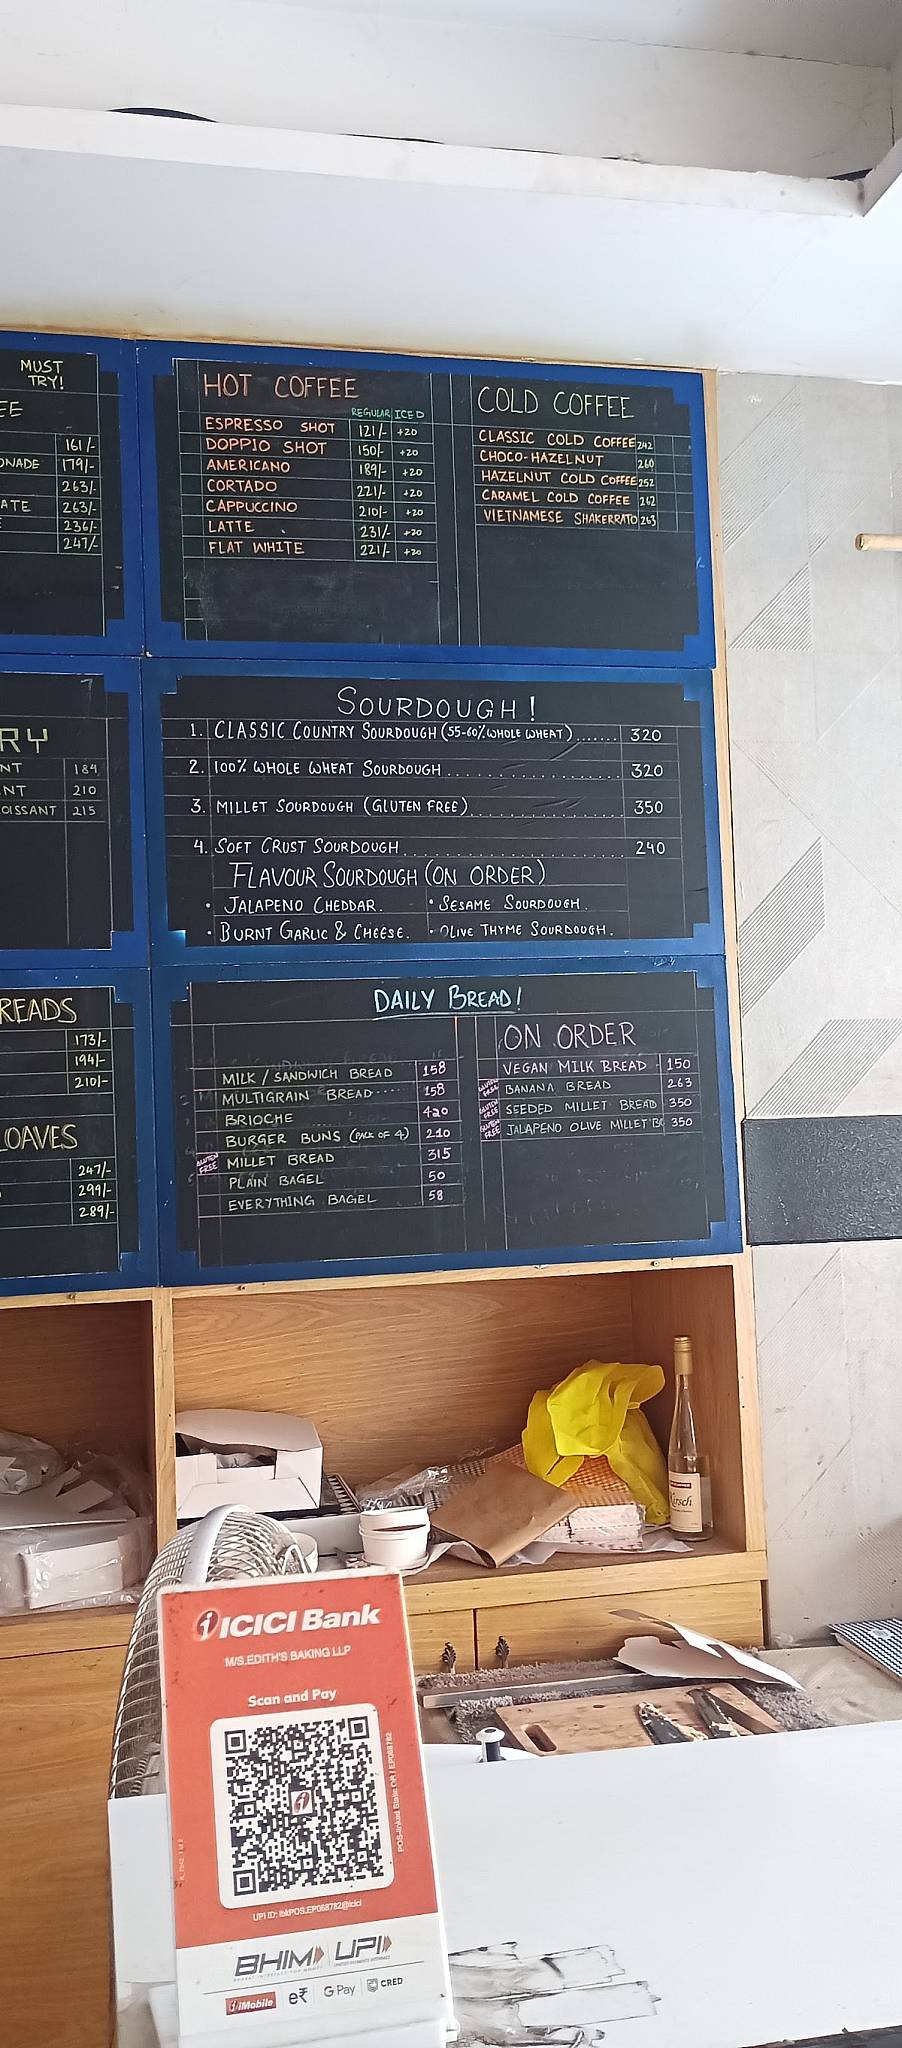 MUST
TRY!
EE
161/-
ONADE 179/-
263/-
ATE 263/-
E 236/-
247/-
HOT COFFEE
REGULAR ICED
ESPRESSO SHOT 121/- +20
DOPPIO SHOT 150/- +20
AMERICANO 189/- +20
CORTADO 221/- +20
CAPPUCCINO 210/- +20
LATTE 231/- +20
FLAT WHITE 221/- +20
COLD COFFEE
CLASSIC COLD COFFEE 242
CHOCO-HAZELNUT 260
HAZELNUT COLD COFFEE 252
CARAMEL COLD COFFEE 262
VIETNAMESE SHAKERRATO 263
RY
NT 184
NT 210
OISSANT 215
SOURDOUGH!
1. CLASSIC COUNTRY SOURDOUGH (55-60% WHOLE WHEAT)....... 320
2. 100% WHOLE WHEAT SOURDOUGH ........................ 320
3. MILLET SOURDOUGH (GLUTEN FREE)..................... 350
4. SOFT CRUST SOURDOUGH.............................. 240
FLAVOUR SOURDOUGH (ON ORDER)
• JALAPENO CHEDDAR. • SESAME SOURDOUGH.
• BURNT GARLIC & CHEESE. • OLIVE THYME SOURDOUGH.
READS
173/-
194/-
210/-
OAVES
247/-
299/-
289/-
DAILY BREAD!
MILK / SANDWICH BREAD 158
MULTIGRAIN BREAD...... 158
BRIOCHE 420
BURGER BUNS (PACK OF 4) 210
GLUTEN FREE MILLET BREAD 315
PLAIN BAGEL 50
EVERYTHING BAGEL 58
ON ORDER
VEGAN MILK BREAD 150
GLUTEN FREE BANANA BREAD 263
GLUTEN FREE SEEDED MILLET BREAD 350
GLUTEN FREE JALAPENO OLIVE MILLET BR 350
Kirsch
ICICI Bank
M/S.EDITH'S BAKING LLP
Scan and Pay
POS-linked Static QR / EP068782
UPI ID: ibkPOS.EP068782@icici
BHIM UPI
iMobile e₹ G Pay CRED